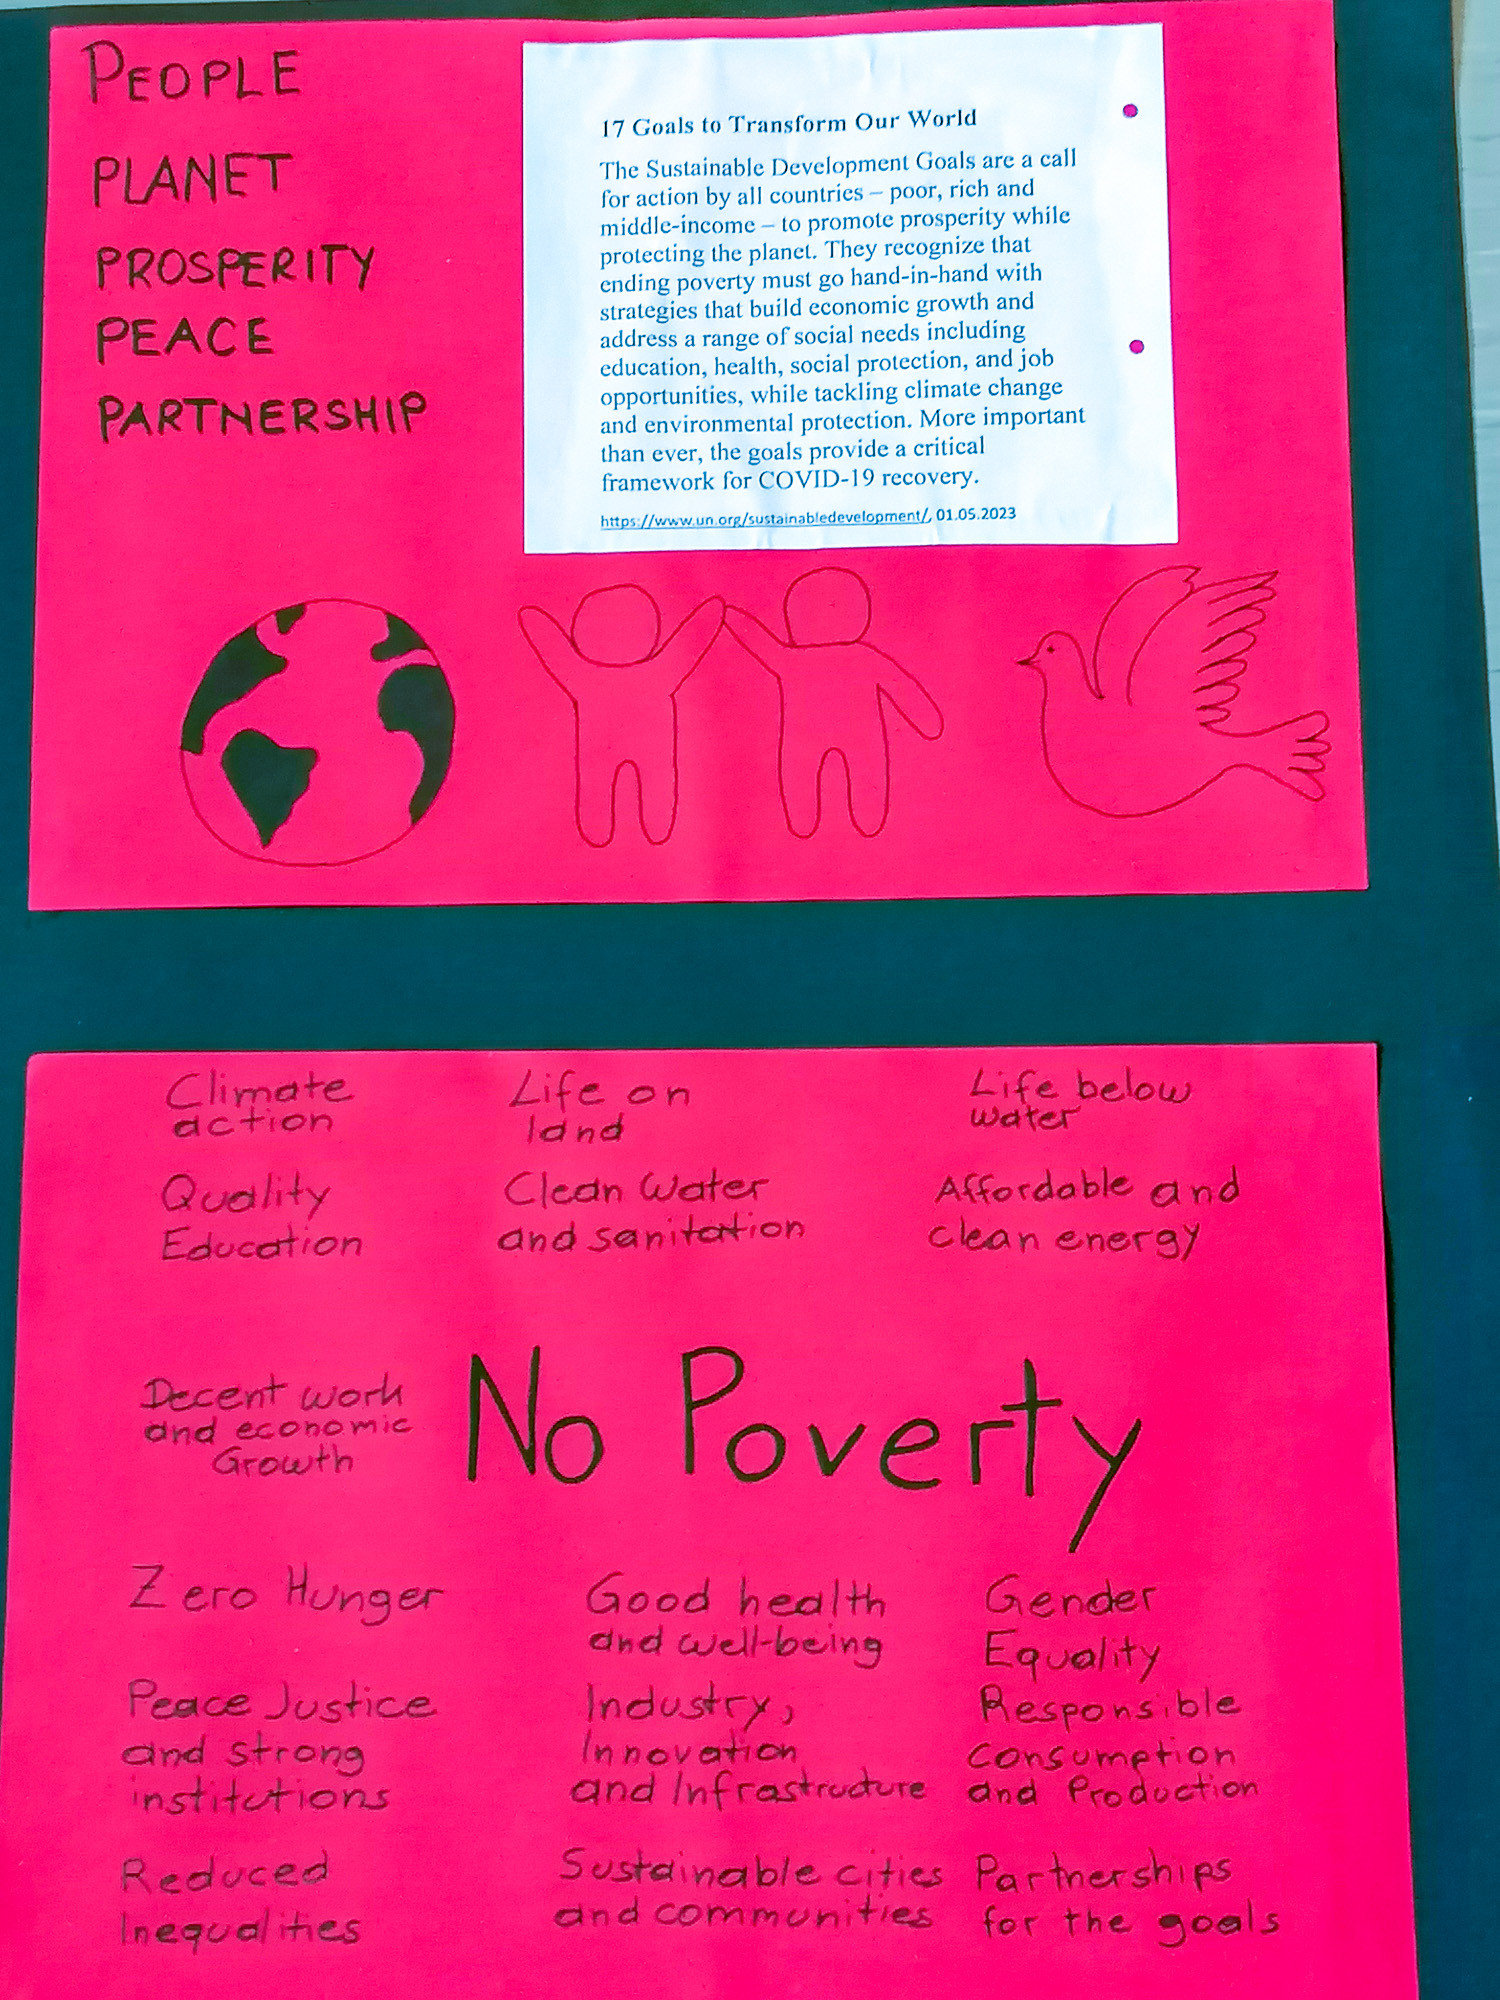 PEOPLE
PLANET
PROSPERITY
PEACE
PARTNERSHIP
17 Goals to Transform Our World
The Sustainable Development Goals are a call
for action by all countries – poor, rich and
middle-income – to promote prosperity while
protecting the planet. They recognize that
ending poverty must go hand-in-hand with
strategies that build economic growth and
address a range of social needs including
education, health, social protection, and job
opportunities, while tackling climate change
and environmental protection. More important
than ever, the goals provide a critical
framework for COVID-19 recovery.
https://www.un.org/sustainabledevelopment/, 01.05.2023
Climate
action
Life on
land
Life below
water
Quality
Education
Clean Water
and sanitation
Affordable and
clean energy
Decent work
and economic
Growth
No Poverty
Zero Hunger
Good health
and well-being
Gender
Equality
Peace Justice
and strong
institutions
Industry,
Innovation
and Infrastructure
Responsible
Consumption
and Production
Reduced
Inequalities
Sustainable cities
and communities
Partnerships
for the goals